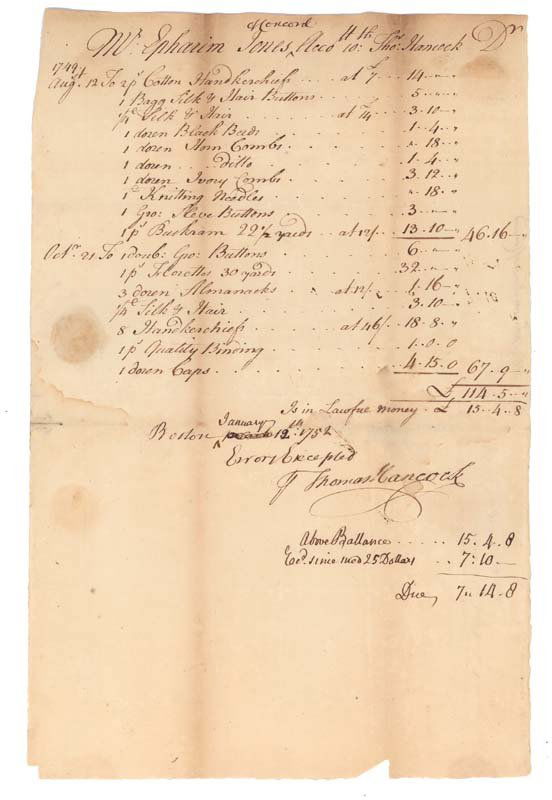 Concord
Mr. Ephraim Jones, Acco to: Thos. Hancock Dr
1749
Augt. 12 To 2ps Cotton Handkerchiefs . . at £7 . . 14 " "
1 Bagg Silk & Hair Buttons . . . 5 " "
Silk & Hair . . . at . . . 3 . 10 "
1 dozen Black Beeds . . . 1 . 4 "
1 dozen Horn Combs . . . " 18 . "
1 dozen . . ditto . . . 1 . 4 "
1 dozen Ivory Combs . . . 3 . 12 "
Knitting Needles . . . " 18 "
1 Gro: Sleve Buttons . . . 3 " "
1 ps Buckram 22 1/2 yards . . at 12/. . 13 . 10 " 46 . 16 "
Octr. 21 To 1 doub: Gro: Buttons . . . 6 " "
1 ps Floretts 30 yards . . . 32 " "
3 dozen Almanacks . . at 12/. . 1 . 16 "
Silk & Hair . . . 3 . 10 "
8 Handkerchiefs . . . at 46/. . 18 . 8 "
1 ps Quality Binding . . . 1 . 0 . 0
1 dozen Caps . . . 4 . 15 . 0 67 . 9 "
£ 114 . 5 "
Is in Lawful money . £ 15 . 4 . 8
January
Boston 12th: 1752
Errors Excepted
Thomas Hancock
Above Ballance . . . . 15 . 4 . 8
since 25 Dollars . . 7 : 10 —
Due, 7 " 14 . 8